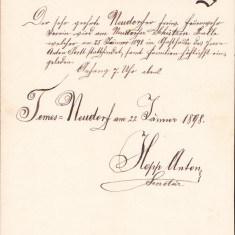 Der sehr geehrte Neudorfer freiw. Feuerwehr
Verein wird am Neudorfer Schützen Balle
welcher am 25 Jänner 1898 im Gasthause des Herrn
sammt Familien höflichst ein
geladen.
Anfang 7 Uhr abend
Temes = Neudorf am 22. Jänner 1898.
Hopp Anton
Secretär